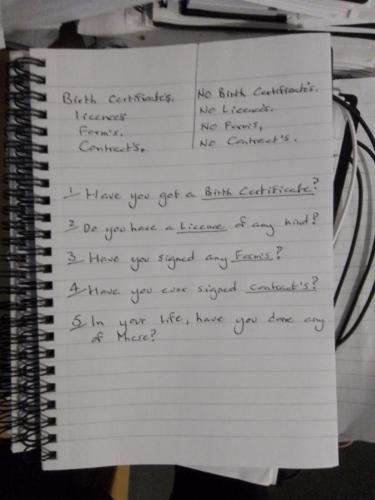 Birth Certificate's.
Licence's
Form's.
Contract's.
No Birth Certificate's.
No Licence's.
No Form's.
No Contract's.
1 Have you got a Birth Certificate?
2 Do you have a Licence of any kind?
3 Have you signed any Form's?
4 Have you ever signed Contract's?
5 In your life, have you done any
of these?